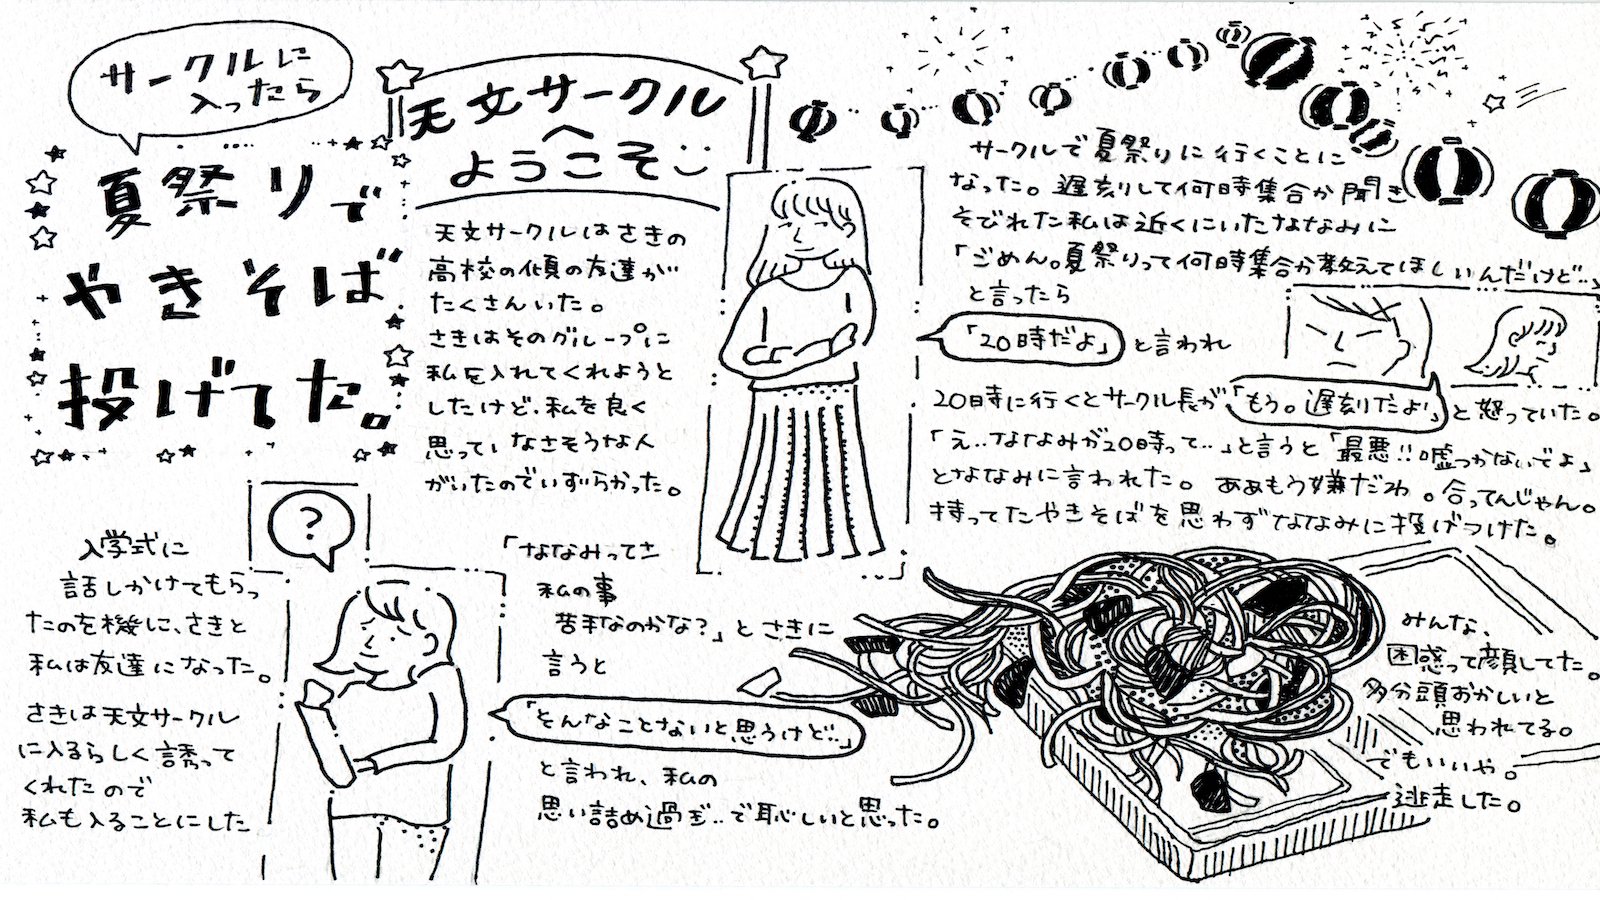 サークルに
入ったら
夏祭りで
やきそば
投げてた。
天文サークル
へ
ようこそ
入学式に
話しかけてもらっ
たのを機に、さきと
私は友達になった。
さきは天文サークル
に入るらしく誘って
くれたので
私も入ることにした
?
天文サークルはさきの
高校の傾の友達が
たくさんいた。
さきはそのグループに
私を入れてくれようと
したけど、私を良く
思っていなさそうな人
がいたのでいずらかった。
「ななみってさ
私の事
苦手なのかな?」とさきに
言うと
「そんなことないと思うけど…」
と言われ、私の
思い詰め過ぎ..で恥しいと思った。
サークルで夏祭りに行くことに
なった。遅刻りして何時集合か聞き
そびれた私は近くにいたななみに
「ごめん。夏祭りって何時集合か教えてほしいんだけど…」
と言ったら
「20時だよ」と言われ
20時に行くとサークル長が「もう。遅刻だよ!」と怒っていた。
「え..ななみが20時って…」と言うと「最悪!!嘘つかないでよ」
とななみに言われた。ああもう嫌だわ。合ってんじゃん。
持ってたやきそばを思わずななみに投げつけた。
みんな、
困惑って顔してた。
多分頭おかしいと
思われてる。
でもいいや。
逃走した。